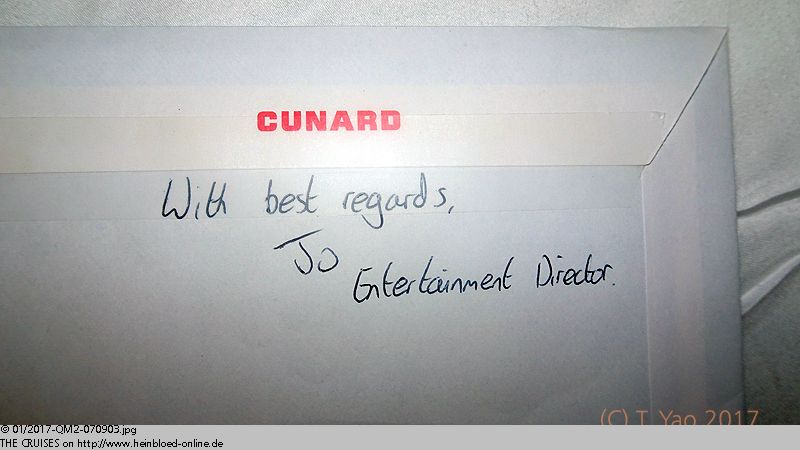 CUNARD
With best regards,
Jo
Entertainment Director.
(C) T. Yao 2017
© 01/2017-QM2-070903.jpg
THE CRUISES on http://www.heinbloed-online.de